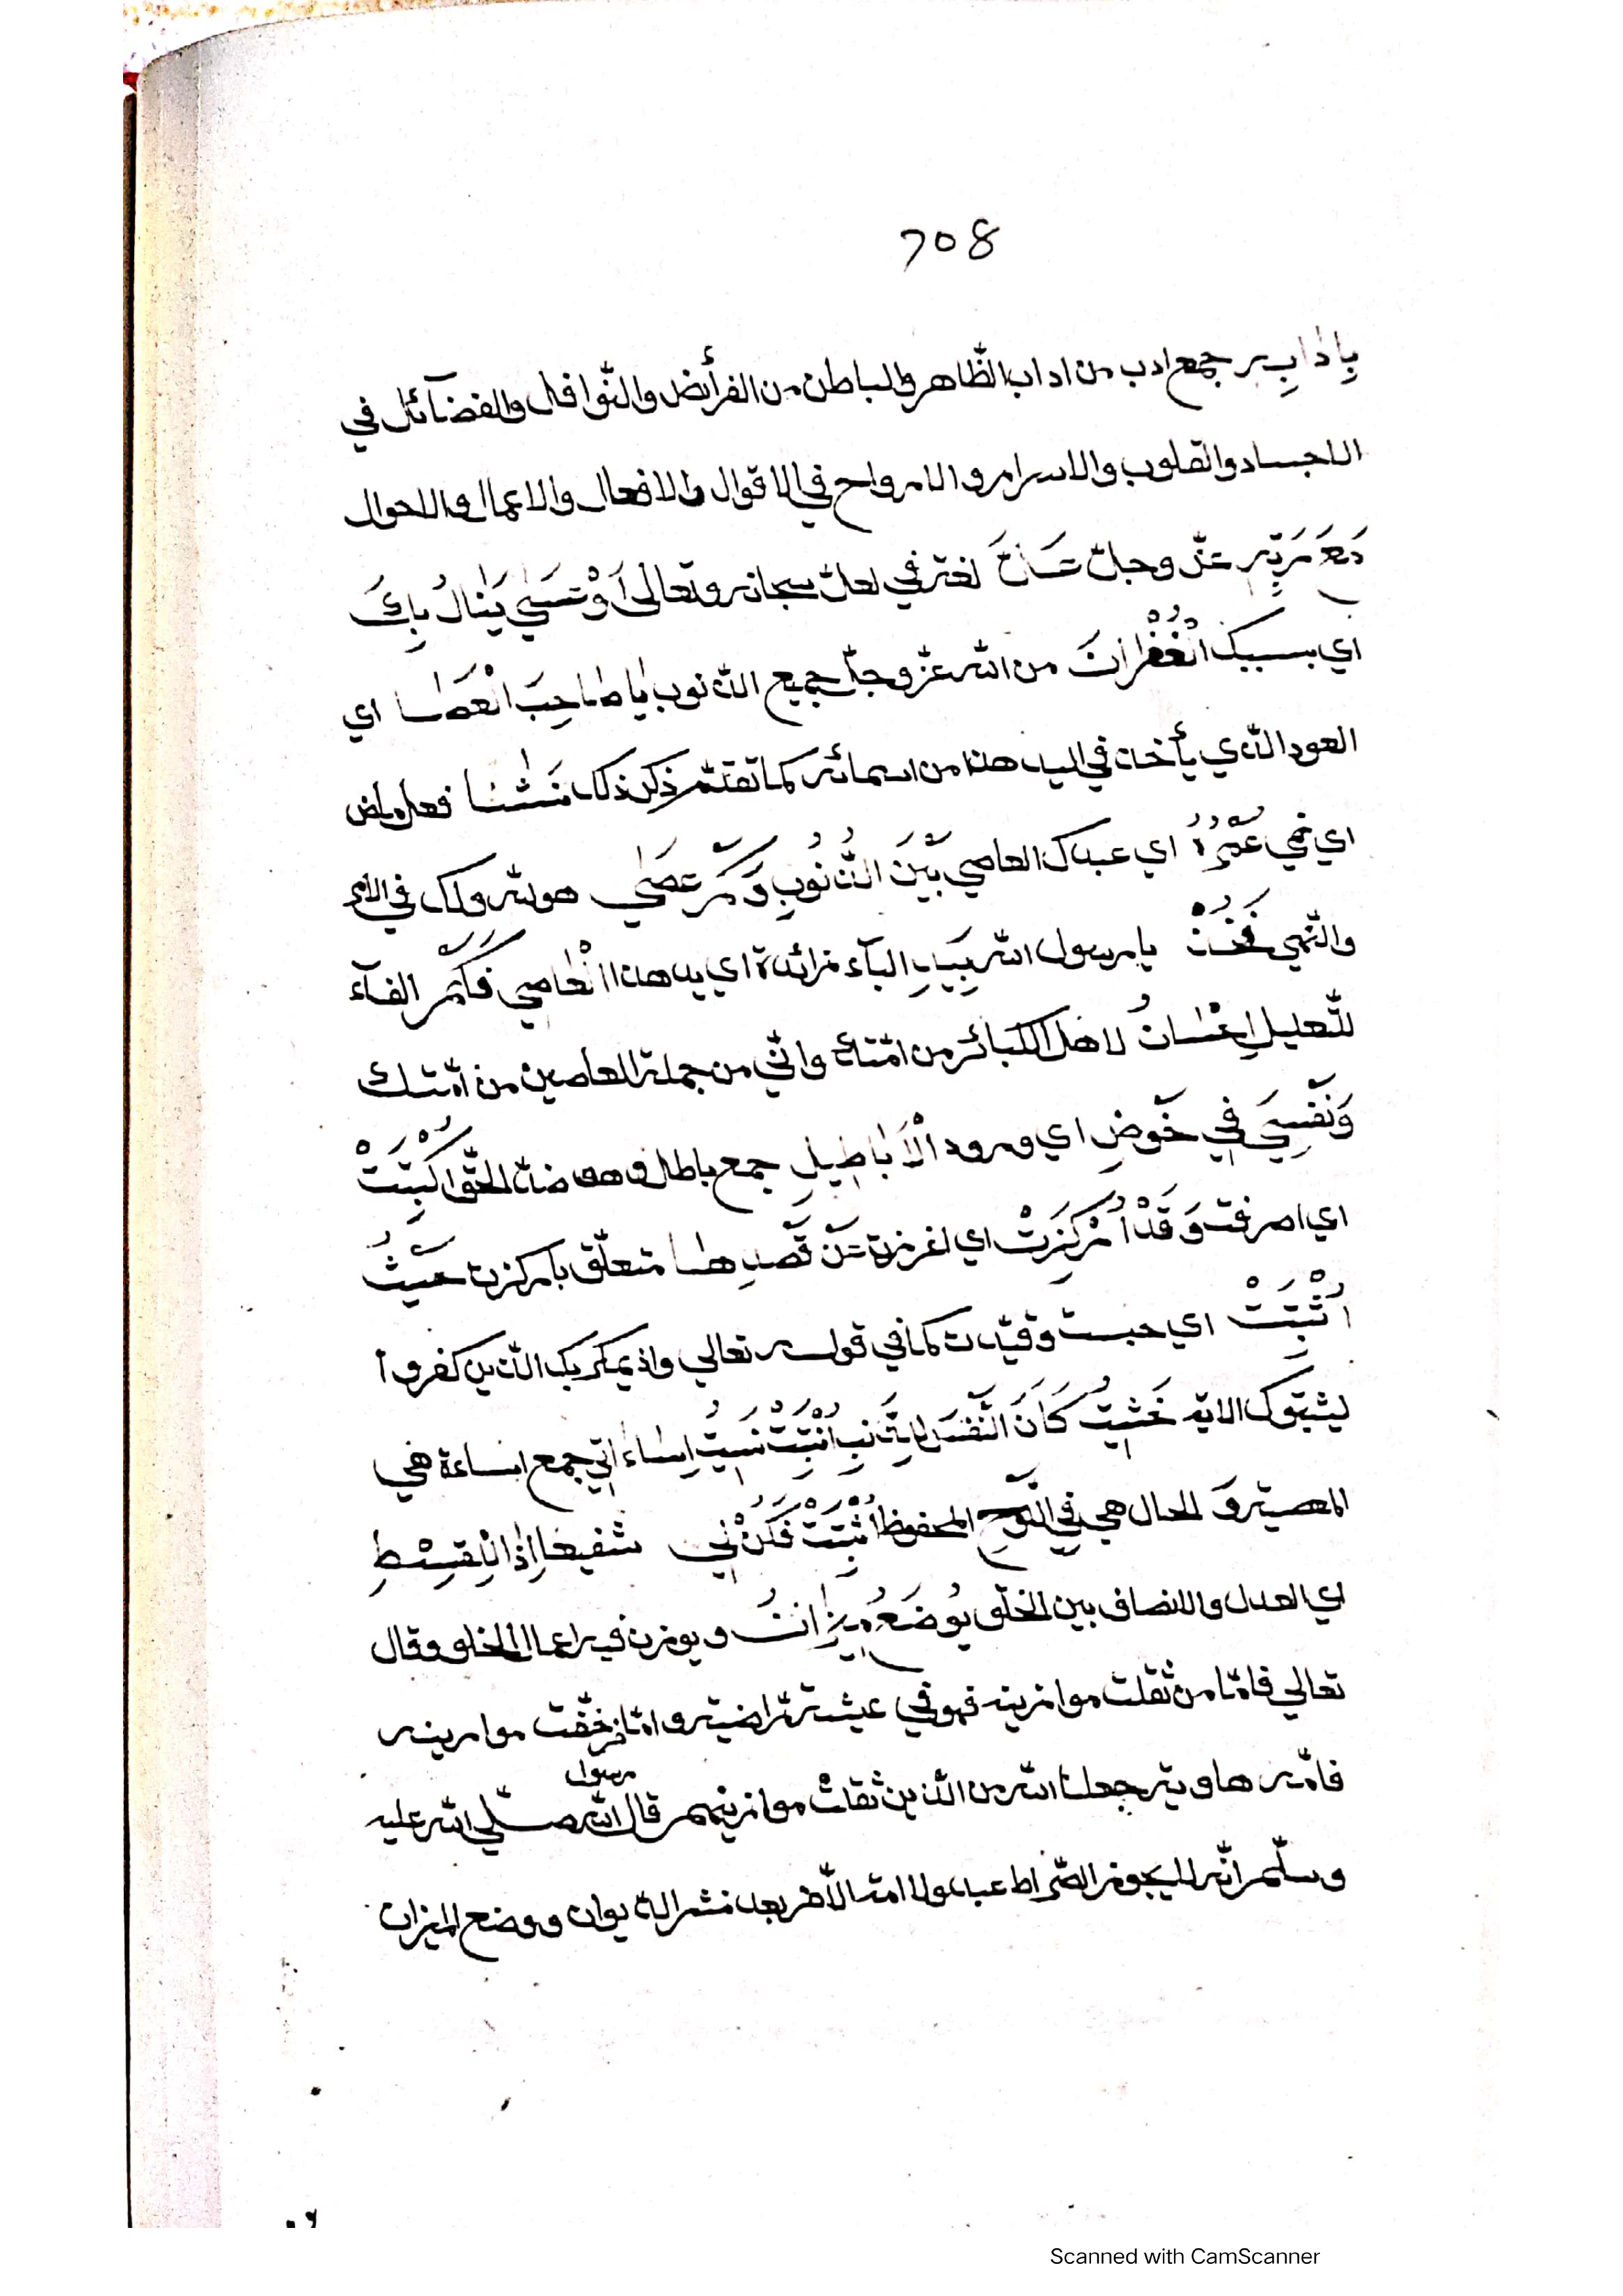 708
بِاٰدٰابِهِ جمع ادب من اداب الظّاهر والباطن من الفرأئض والنّوافل والفضآئل في
الاجساد والقلوب والاسرار والارواح في الاقوال والافعال والاعمال والاحوال
مَعَ رَبِّهِ عزّ وجلّ عَلَّ لغتر في لعلّ سبحانه وتعالى اَوْ عَسَىٰ يَنٰالُ بِكَ
اي بسببك الْغُفْرٰانَ من اللّه عزّ وجلّ جميع الذّنوب يٰا صٰاحِبَ الْعَصٰا اي
العود الّذي يأخذ في اليد هذا من اسمائه كما تقدّم ذكر ذلك مَشٰا فعل ماض
اي في عُمْرُهُ اي عبدك العاصي بَيْنَ الذُّنُوبِ وَكَمْ عَصٰى هو للّه ولك في الامر
والنّهي فَخُذْ يا رسول اللّه بِيَدِ الباء زائدة اي يد هذا الْعٰاصِي فَكَمْ الفآء
للتّعليل اِحْسٰانُ لاهل الكبائر من امّتك وانّي من جملة العاصين من امّتك
وَنَفْسِيَ فِي خَوْضِ اي ورود الْاَبٰاطِيلِ جمع باطل وهو ضدّ الحقّ اكُبِتَتْ
اي اصرفت وَقَدْ اُرْكِزَتْ اي اغرزت عَنْ قَصْدِهٰا متعلّق باركزت حَيْثُ
اُثْبِتَتْ اي حبست وقيّدت كما في قوله تعالي واذ يمكر بك الّذين كفروا
ليثبتوك الاية خَشِيتُ كَاَنَ النَّفْسَ لِلذَّنْبِ اُنْبِتَتْ نَسِيتُ اِسٰاءٰاتِي جمع اساءة هي
المعصية وَ الحال هي فِي اللَّوْحِ المحفوظ اُثْبِتَتْ فَكُنْ لِي شفيعا اِذٰا لِلْقِسْطِ
اي العدل والانصاف بين الخلق يُوضَعُ مِيزٰانُ ويوزن فيه اعمال الخلق وقال
تعالي فامّا من ثقلت موازينه فهو في عيشة رّاضية وامّا من خفّت موازينه
فامّه هاوية جعلنا اللّه من الّذين ثقلتْ موازينهم قال رسول اللّه صلّي اللّه عليه
وسلّم انّه لا يجوز الصّراط عبد ولا امة الّا من بعد نشر الدّيوان ووضع الميزان
Scanned with CamScanner